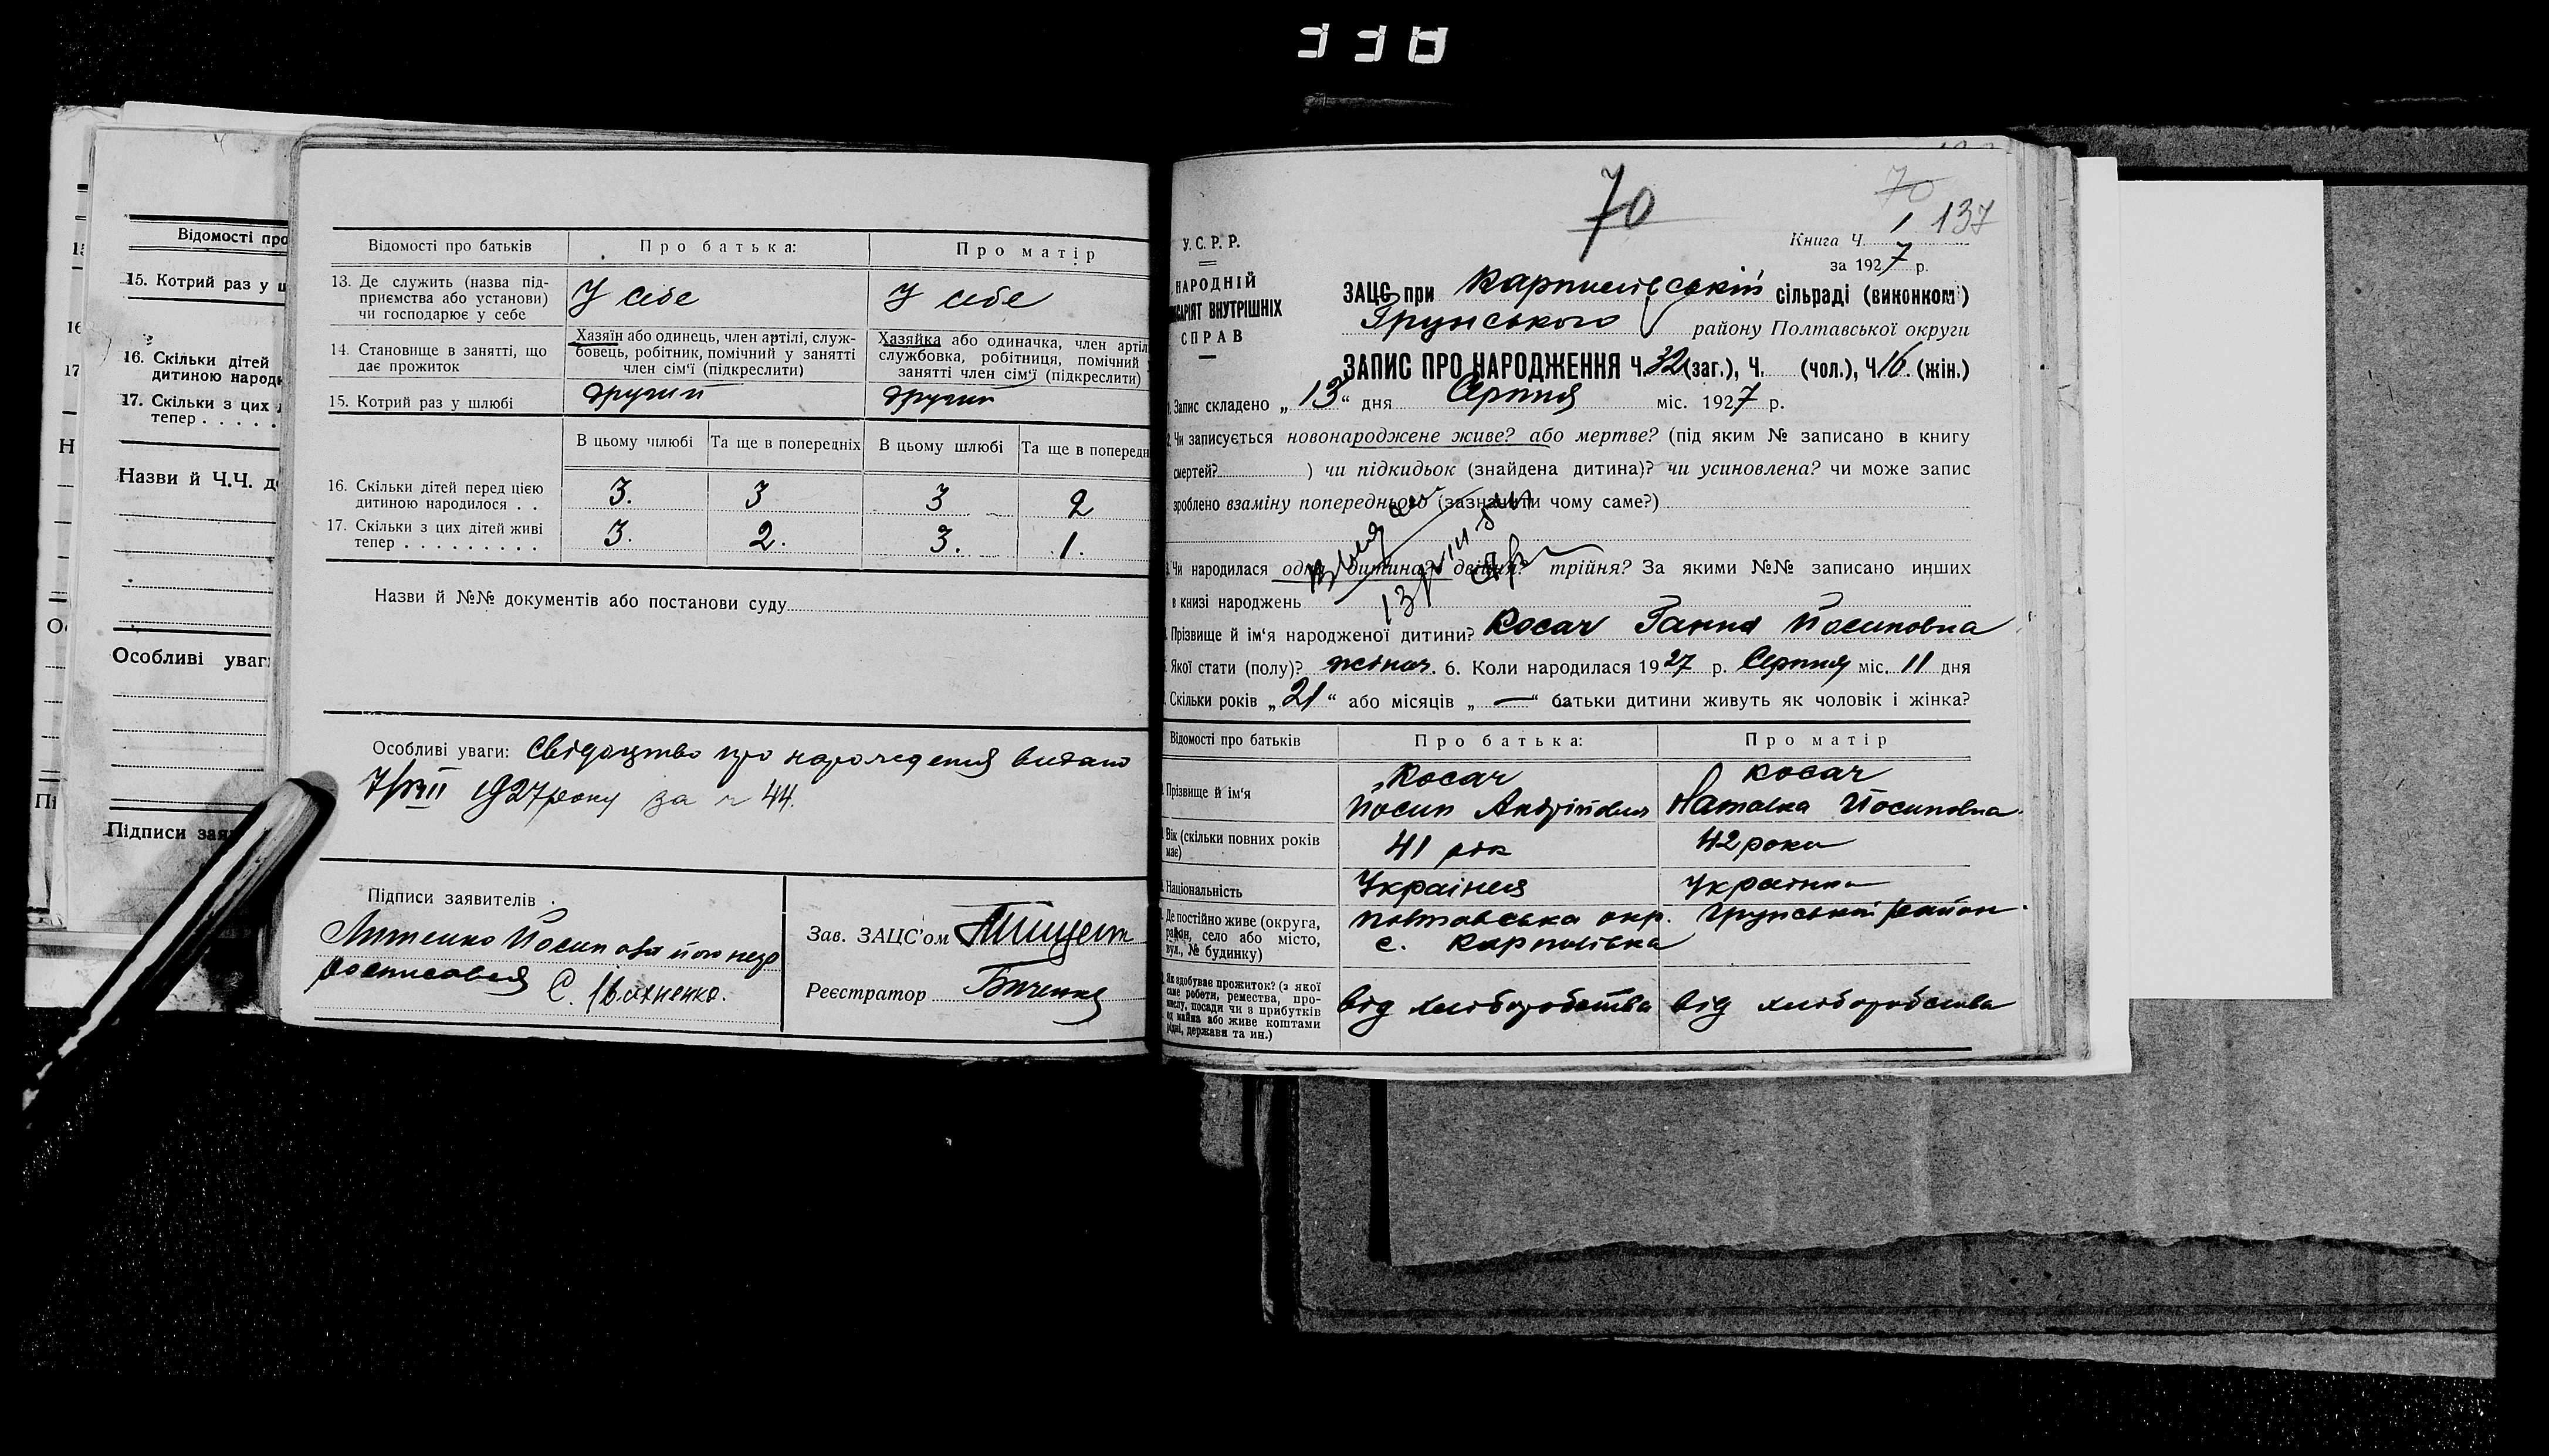 Відомості про
15. Котрий раз у ш
16. Скільки дітей
дитиною народи
17. Скільки з цих
тепер . . . . .
Назви й Ч.Ч. до
Особливі уваги
Підписи зая
Відомості про батьків
Про батька:
Про матір
13. Де служить (назва під-
приємства або установи)
чи господарює у себе
У себе
У себе
14. Становище в занятті, що
дає прожиток
Хазяїн або одинець, член артілі, служ-
бовець, робітник, помічний у занятті
член сім'ї (підкреслити)
Хазяйка або одиначка, член артіл
службовка, робітниця, помічний у
занятті член сім'ї (підкреслити)
15. Котрий раз у шлюбі
другий
другий
В цьому шлюбі
Та ще в попередніх
В цьому шлюбі
Та ще в попередн
16. Скільки дітей перед цією
дитиною народилося . .
3.
3
3
2
17. Скільки з цих дітей живі
тепер . . . . . . . . .
3.
2.
3.
1.
Назви й №№ документів або постанови суду
Особливі уваги: Свідоцтво про народження видано
1927 року за ч 44.
Підписи заявителів
Йосип
Зав. ЗАЦС'ом
Реєстратор
70
70
137
У.С.Р.Р.
НАРОДНІЙ
САРІЯТ ВНУТРІШНІХ
СПРАВ
Книга Ч. 1
за 1927 р.
ЗАЦС при Карпилівській сільраді (виконком)
Грунського району Полтавської округи
ЗАПИС ПРО НАРОДЖЕННЯ Ч. 32 (заг.), Ч. (чол.), Ч. 16. (жін.)
1. Запис складено „ 13 “ дня Серпня міс. 1927 р.
2. Чи записується новонароджене живе? або мертве? (під яким № записано в книгу
смертей? ) чи підкидьок (знайдена дитина)? чи усиновлена? чи може запис
зроблено взаміну попереднього (зазначити чому саме?)
3. Чи народилася одна дитина? двійня? трійня? За якими №№ записано инших
в книзі народжень
Прізвище й ім'я народженої дитини? Косач Ганна Йосиповна
Якої стати (полу)? жіноч. 6. Коли народилася 1927 р. Серпня міс. 11 дня
Скільки років „ 21 “ або місяців „ — “ батьки дитини живуть як чоловік і жінка?
Відомості про батьків
Про батька:
Про матір
Прізвище й ім'я
Косач
Йосип Андрійович
Косач
Наталка Йосиповна
Вік (скільки повних років
має)
41 рік
42 роки
Національність
Українец
Українка
Де постійно живе (округа,
район, село або місто,
вул., № будинку)
Полтавська окр. Грунський район
с. Карпилівка
Як здобуває прожиток? (з якої
саме роботи, ремества, про-
мислу, посади чи з прибутків
од майна або живе коштами
рідні, держави та ин.)
від хліборобства
від хліборобства